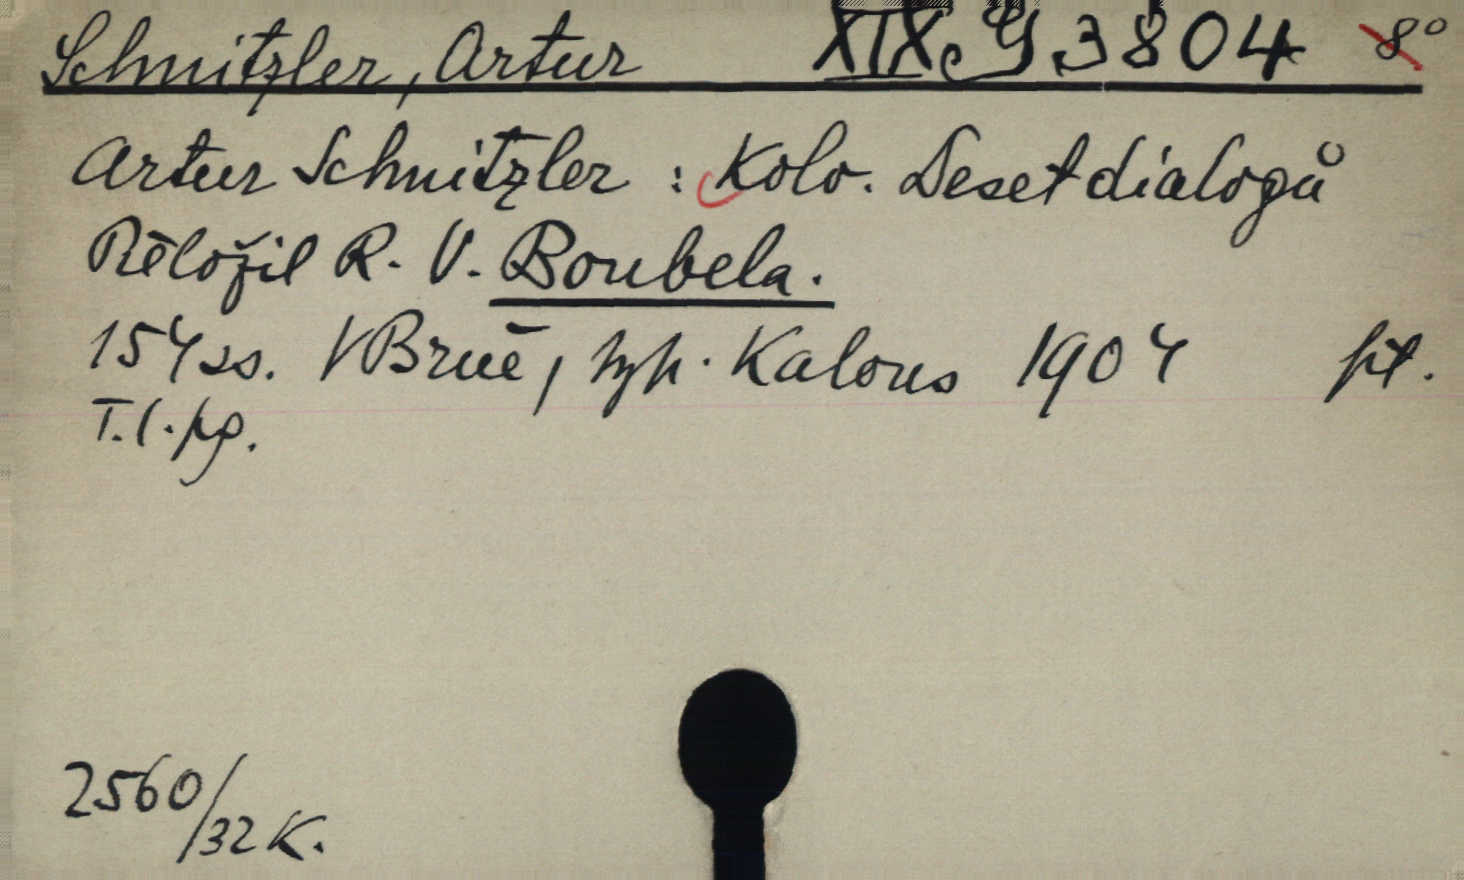 Schnitzler, Artur XIX.G 3804 8°
Artur Schnitzler : Kolo. Deset dialogů
Přeložil R. V. Boubela.
154 ss. V Brně, typ. Kalous 1904 pt.
T.l.pg.
2560/32 K.